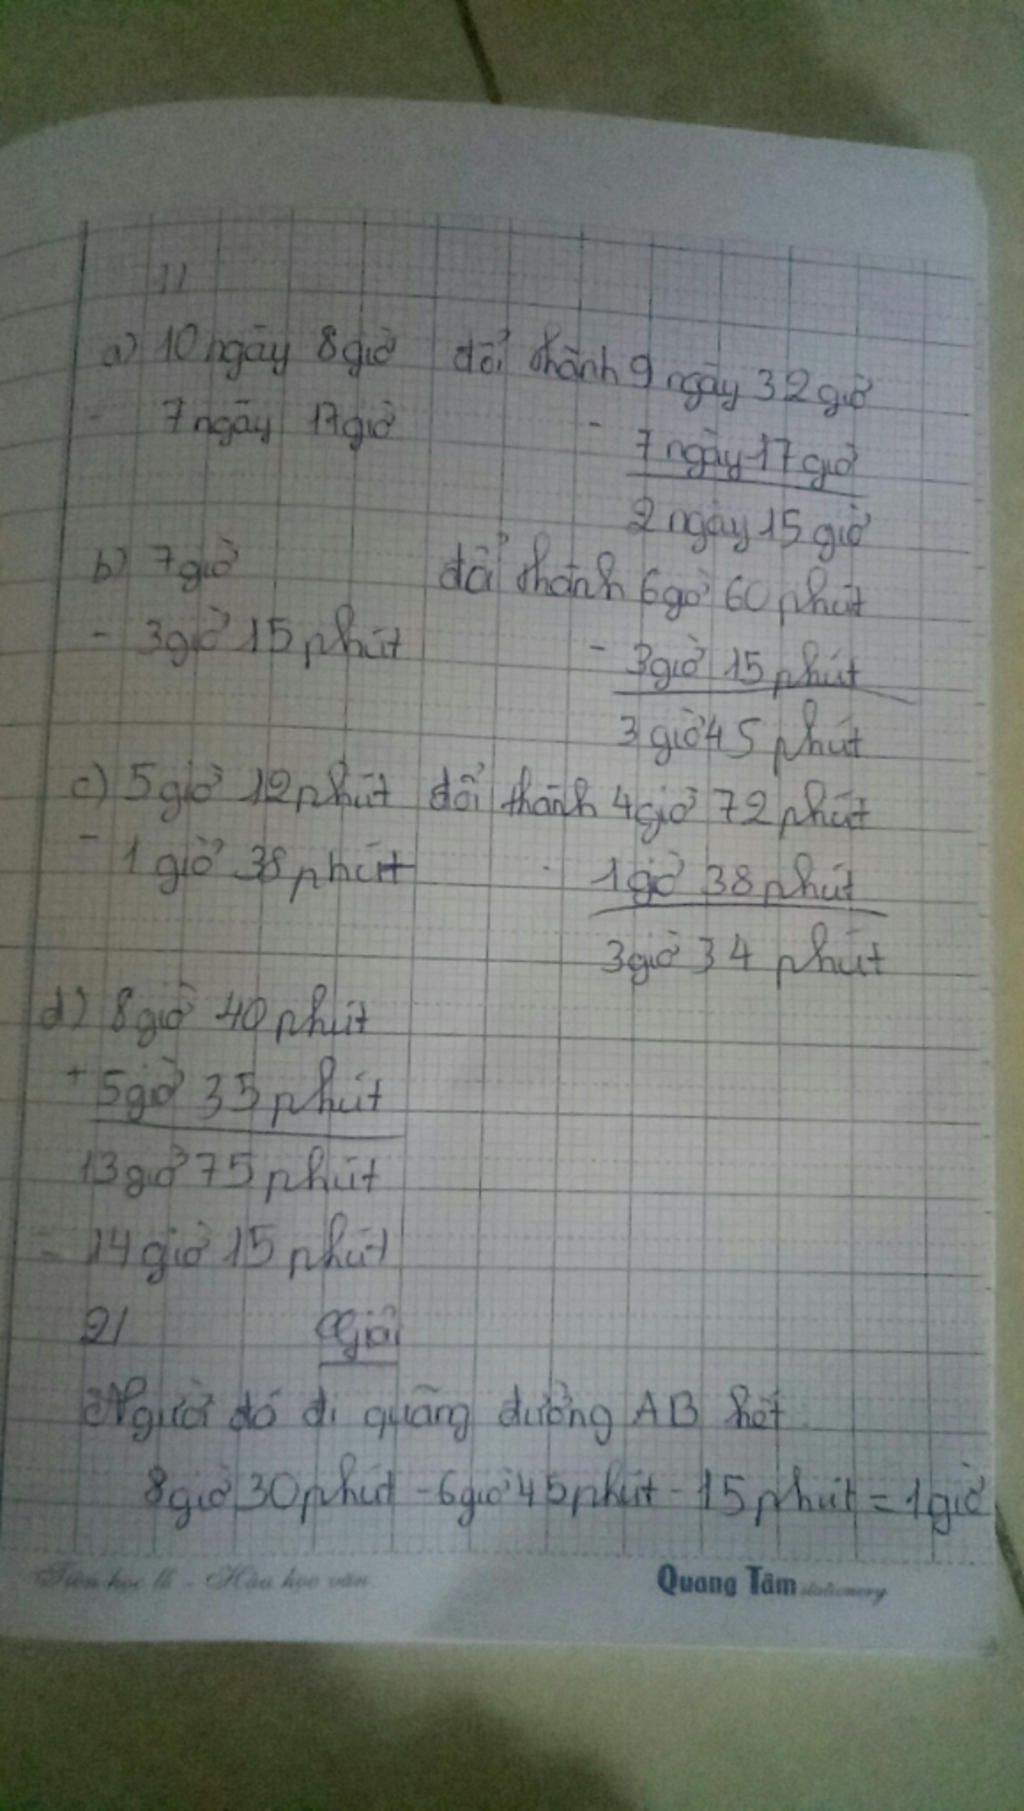 1/
a) 10 ngày 8 giờ đổi thành 9 ngày 32 giờ
- 7 ngày 17 giờ - 7 ngày 17 giờ
2 ngày 15 giờ
b) 7 giờ đổi thành 6 giờ 60 phút
- 3 giờ 15 phút - 3 giờ 15 phút
3 giờ 45 phút
c) 5 giờ 12 phút đổi thành 4 giờ 72 phút
- 1 giờ 38 phút - 1 giờ 38 phút
3 giờ 34 phút
d) 8 giờ 40 phút
+ 5 giờ 35 phút
13 giờ 75 phút
= 14 giờ 15 phút
2/ Giải
Người đó đi quãng đường AB hết
8 giờ 30 phút - 6 giờ 45 phút - 15 phút = 1 giờ
Tiên học lễ - Hậu học văn Quang Tâm stationery